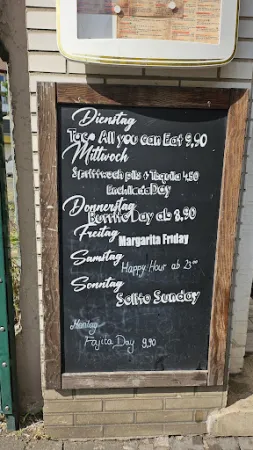 Dienstag
Taco All you can Eat 9,90
Mittwoch
Spritzwoch pils + Tequila 4.50
Enchilada Day
Donnerstag
Burrito Day ab 8.90
Freitag
Margarita Friday
Samstag
Happy Hour ab 23⁰⁰
Sonntag
Solito Sunday
Montag
Fajita Day 9,90